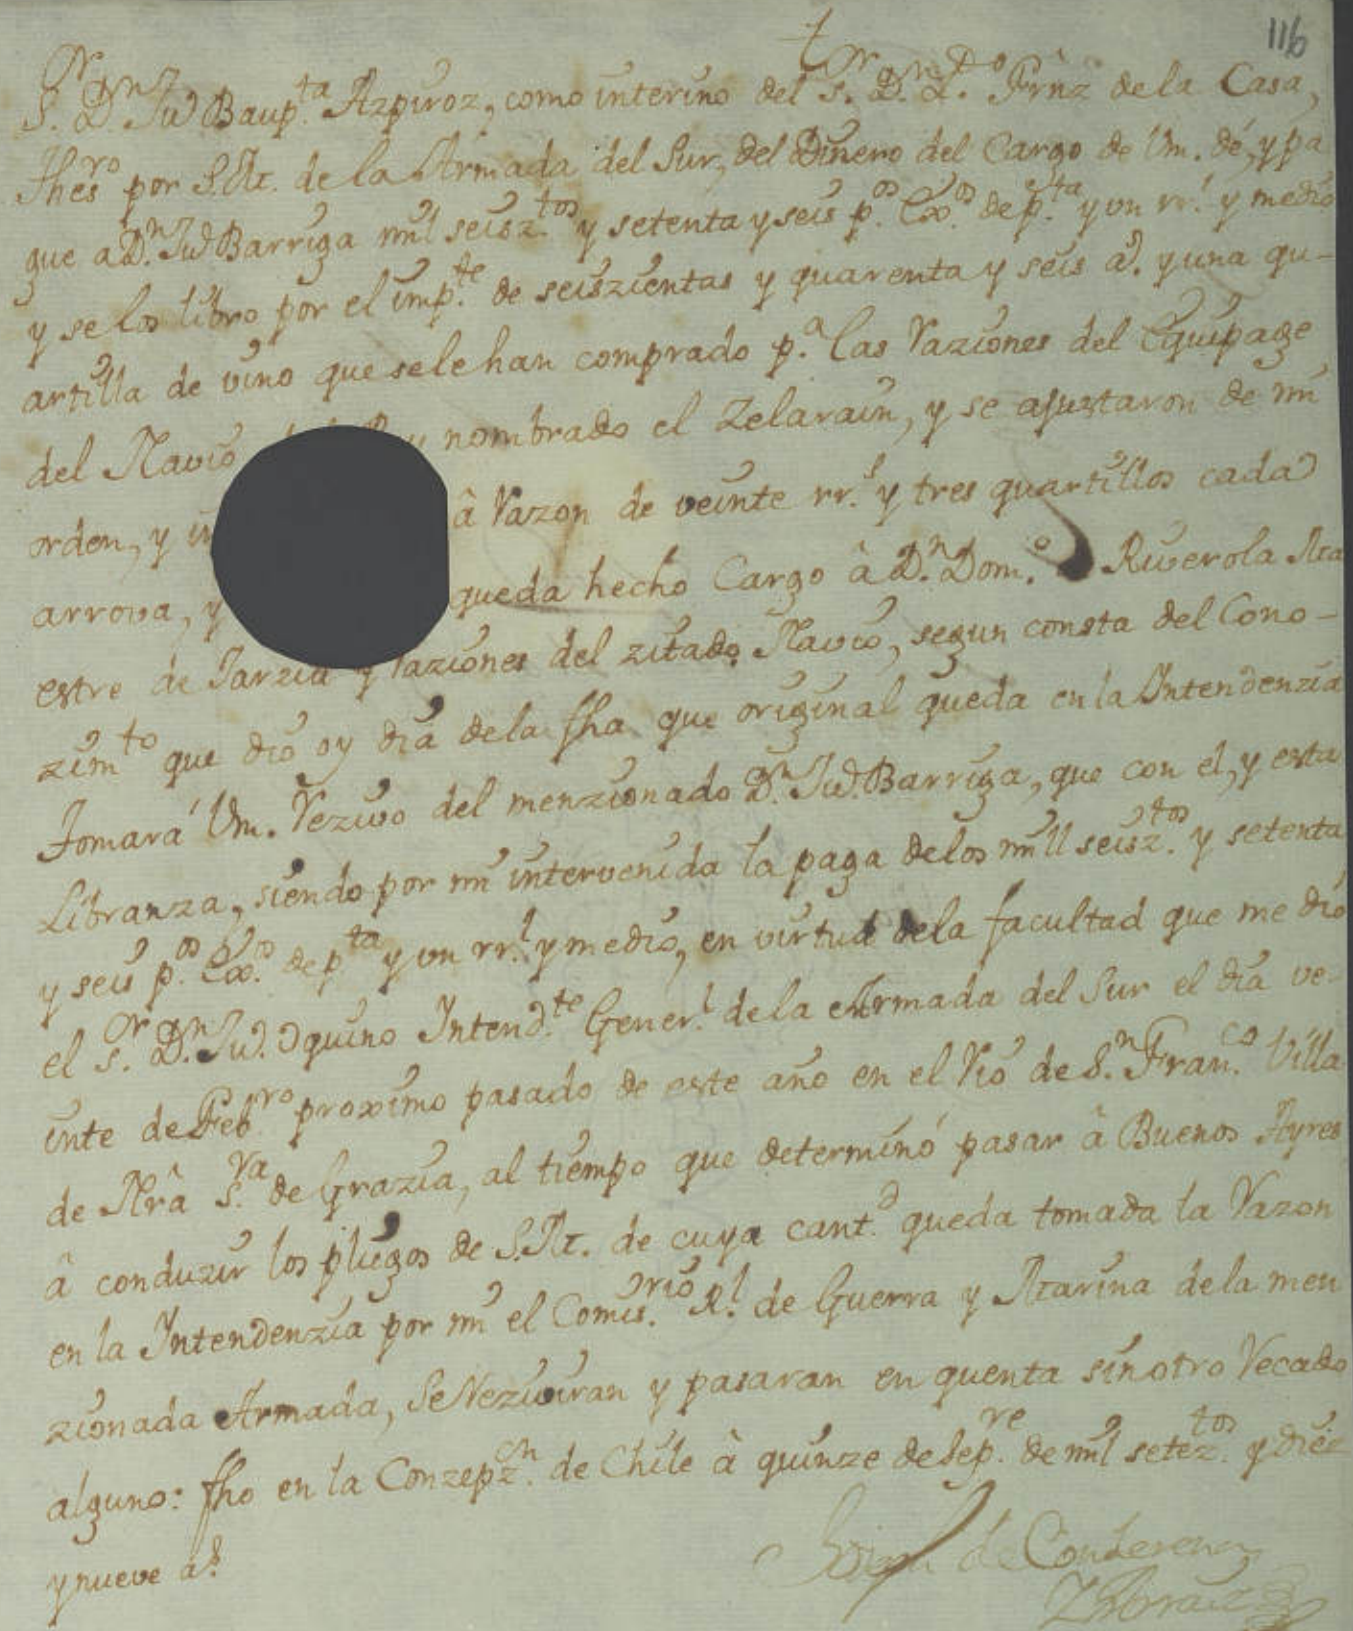 116
†
S.or D.n Ju.o Baup.ta Azpiroz, como interino del S.or D.n L.do Frnz de la Casa,
Thes.ro por S.M. de la Armada del Sur, del Dinero del Cargo de Vm. dé, y pa
gue a D.n Ju.o Barriga mil seisz.tos y setenta y seis p.os Ex.os de p.ta y vn rr.l y medio
y se los libro por el imp.te de seiszientas y quarenta y seis a.s y una qu-
artilla de vino que se le han comprado p.a las Raziones del Equipage
del Navio nombrado el Zelarain, y se ajustaron de mi
orden, y â Razon de veinte rr.s y tres quartillos cada
arrova, y queda hecho Cargo â D.n Dom.o Riverola Ma
estre de Jarzia y Raziones del zitado Navio, segun consta del Cono-
zim.to que dio oy dia de la fha que original queda en la Intendenzia
Tomará Vm. Rezivo del menzionado D.n Ju.o Barriga, que con el, y esta
Libranza, siendo por mi intervenida la paga de los mill seisz.tos y setenta
y seis p.os Ex.os de p.ta y vn rr.l y medio, en virtud de la facultad que me dio
el S.or D.n Ju.o Oquino Intend.te Gener.l de la Armada del Sur el dia ve-
inte de Feb.ro proximo pasado de este año en el Rio de S.n Fran.co Villa
de Nrâ S.ra de Grazia, al tiempo que determinó pasar â Buenos Ayres
â conduzir los pliegos de S.M. de cuya cant.d queda tomada la Razon
en la Intendenzia por mi el Comis.rio R.l de Guerra y Marina de la men
zionada Armada, Se Reziviran y pasaran en quenta sin otro Recado
alguno: fho en la Conzepz.on de Chile â quinze de Sep.re de mil setez.tos y diez
y nueve a.s
de